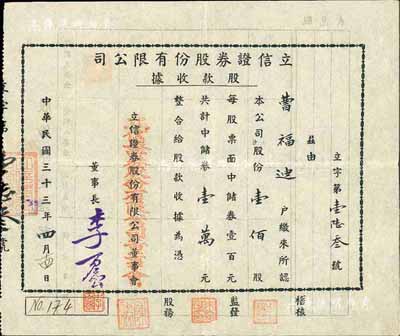 立信證券股份有限公司
股款收據
立字第壹陸叁號
茲由
曹福迪 户繳來所認
本公司股份 壹佰 股
每股票面中儲券壹百元
共計中儲券 壹萬 元
整合給股款收據為憑
立信證券股份有限公司董事會
董事長
中華民國三十三年四月 日
稽核
監督
股務
No. 174